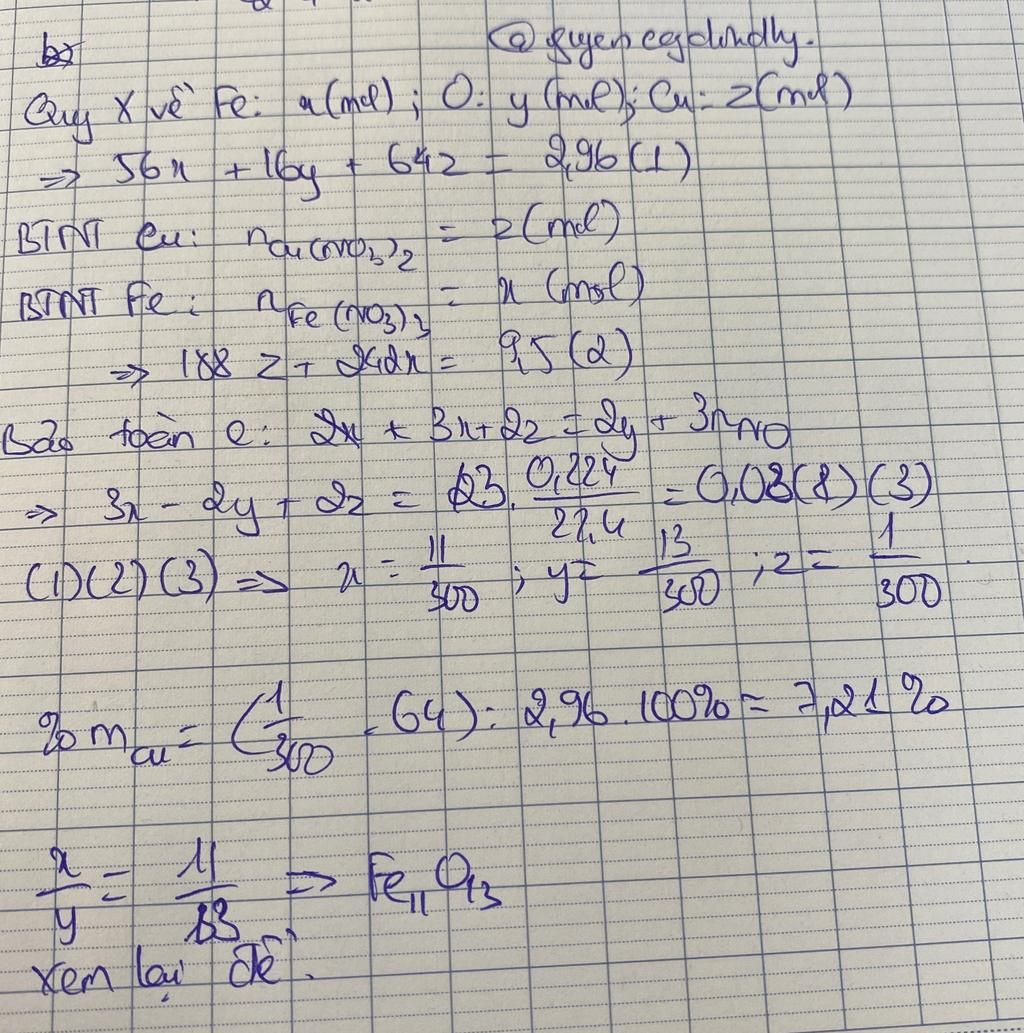 b)
Quy X về Fe: x (mol); O: y (mol); Cu: z (mol)
=> 56x + 16y + 64z = 2,96 (1)
BTNT Cu: nCu(NO3)2 = z (mol)
BTNT Fe: nFe(NO3)3 = x (mol)
=> 188 z + 242x = 9,5 (2)
Bảo toàn e: 2x + 3x + 2z = 2y + 3nNO
=> 3x - 2y + 2z = 3. 0,224/22,4 = 0,03 (3)
(1)(2)(3) => x = 11/300 ; y = 13/300 ; z = 1/300
%mCu = (1/300 . 64) : 2,96 . 100% = 7,21%
x/y = 11/13 => Fe11O13
xem lại đề.